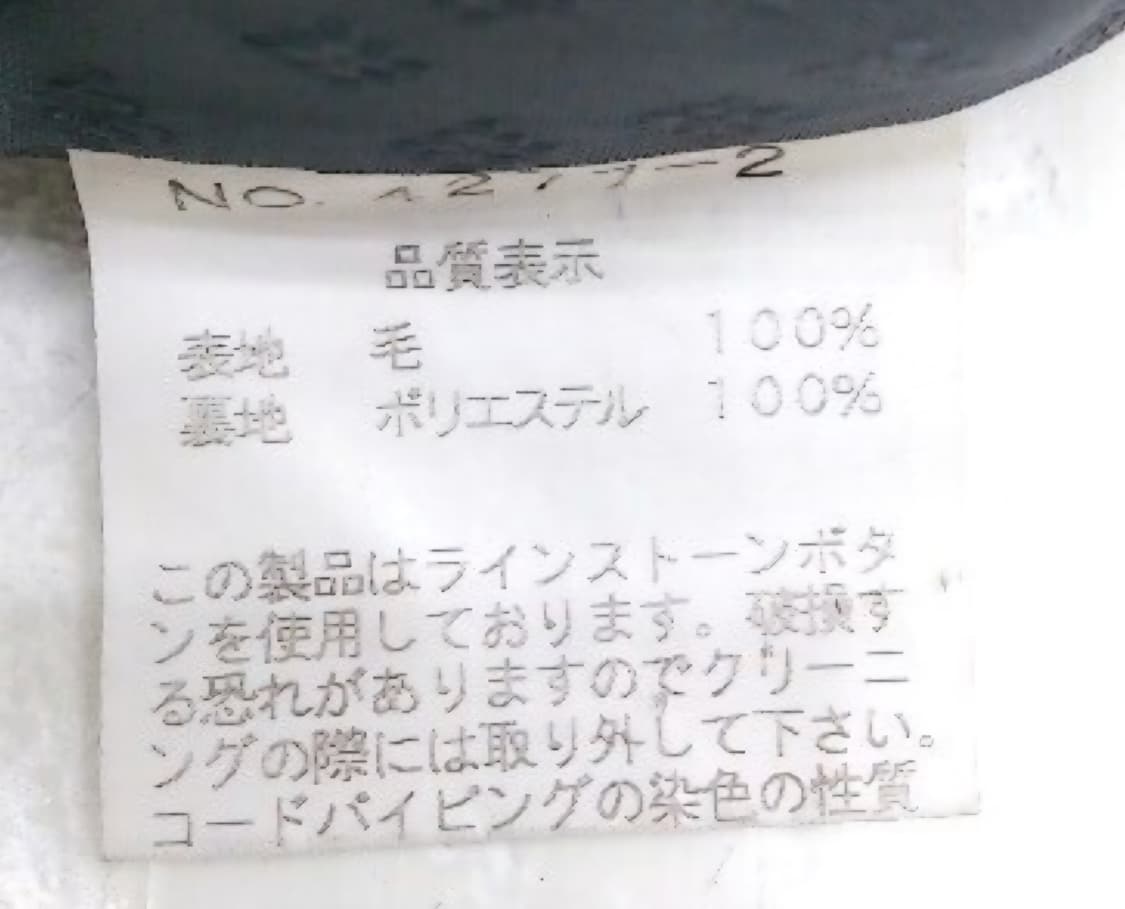 NO.
品質表示
表地 毛 100%
裏地 ポリエステル 100%
この製品はラインストーンボタ
ンを使用しております。破損す
る恐れがありますのでクリーニ
ングの際には取り外して下さい。
コードパイピングの染色の性質